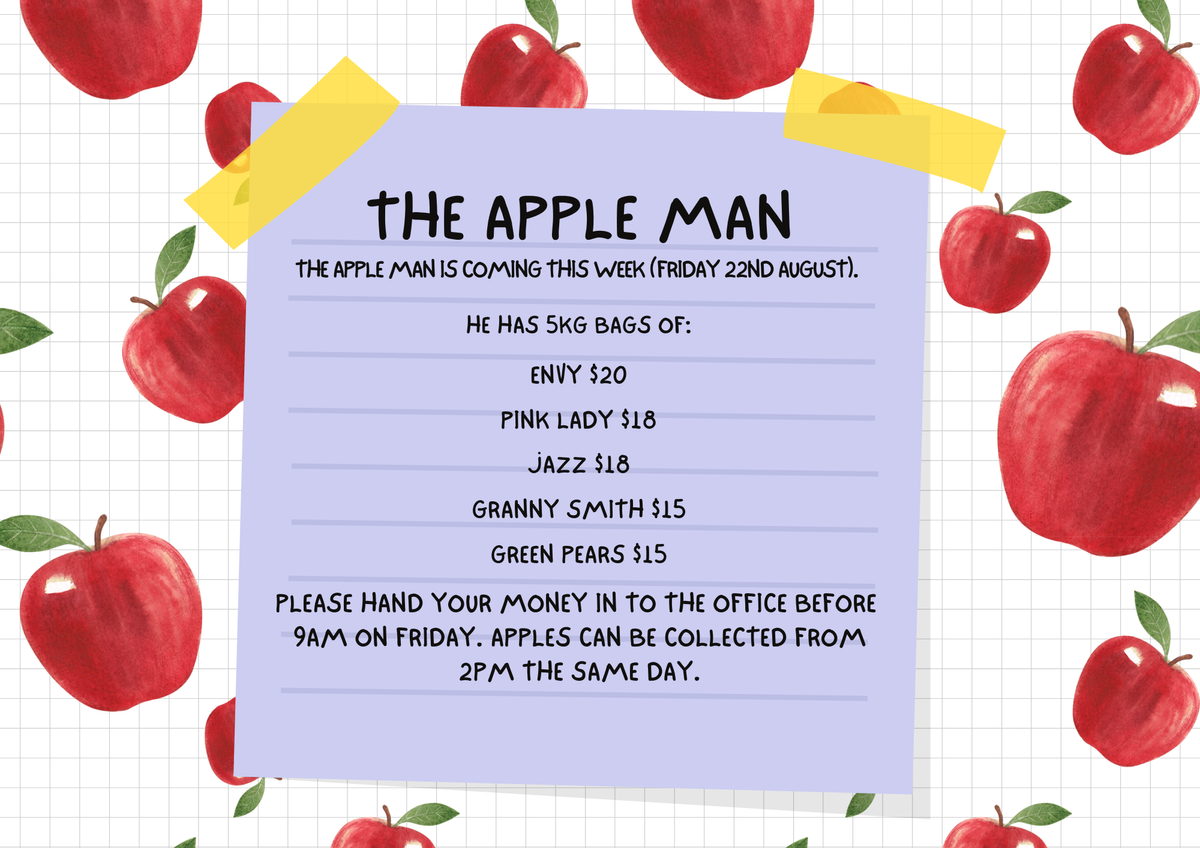 THE APPLE MAN
THE APPLE MAN IS COMING THIS WEEK (FRIDAY 22ND AUGUST).
HE HAS 5KG BAGS OF:
ENVY $20
PINK LADY $18
JAZZ $18
GRANNY SMITH $15
GREEN PEARS $15
PLEASE HAND YOUR MONEY IN TO THE OFFICE BEFORE
9AM ON FRIDAY. APPLES CAN BE COLLECTED FROM
2PM THE SAME DAY.